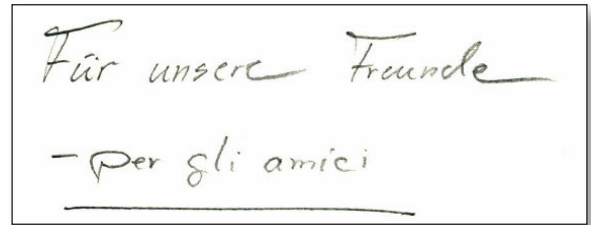 Für unsere Freunde
- per gli amici